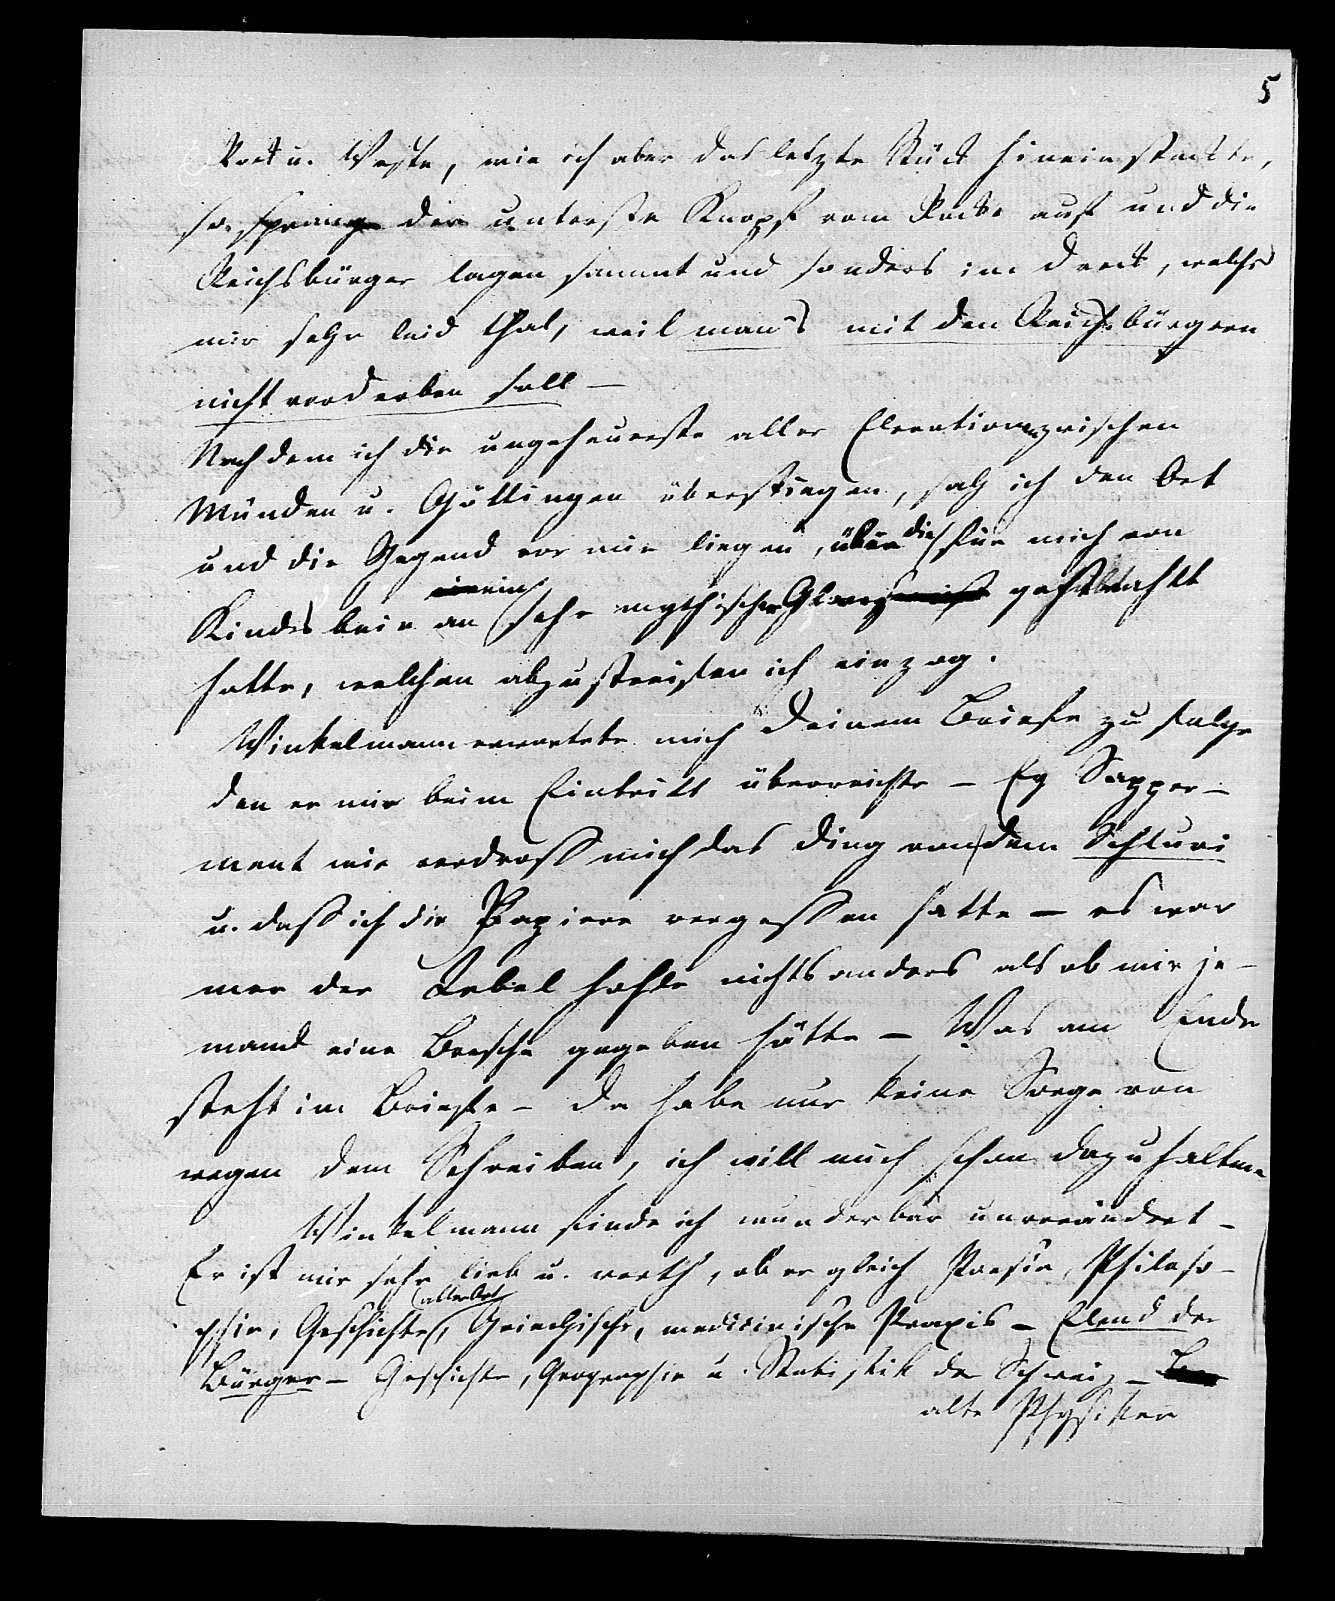 5
Rock u. Weste, wie ich aber das letzte Stück hineinsteckte,
so sprang der unterste Knopf vom Rocke auf und die
Reichsbürger lagen sammt und sonders im Dreck, welches
mir sehr leid that, weil man's mit den Reichsbürgern
nicht verderben soll –
Nachdem ich die ungeheuerste aller Elevationen zwischen
Münden u. Göttingen überstiegen, sah ich den Ort
und die Gegend vor mir liegen, über die für mich von
Kindesbein an ein sehr mythischer Glanz
hatte, welchen abzustreifen ich einzog.
Winkelmann erwartete mich Deinem Briefe zu folge
den er mir beim Eintritt überreichte – Ey Sapper-
ment wie verdroß mich das Ding von dem Schluri
u. daß ich die Papiere vergeßen hatte – es war
mir der nichts anders als ob mir je-
mand eine gegeben hätte – Was am Ende
steht im Briefe – da habe nur keine Sorge von
wegen dem Schreiben, ich will mich schon dazu halten
Winkelmann finde ich wunderbar unverändert –
Er ist mir sehr lieb u. werth, ob er gleich Poesie, Philoso-
phie, Geschichte aller Art, Griechische, medicinische Praxis – Elend der
Bürger – Geschichte, Geographie u. Statistik der Schweiz –
alte Physiker